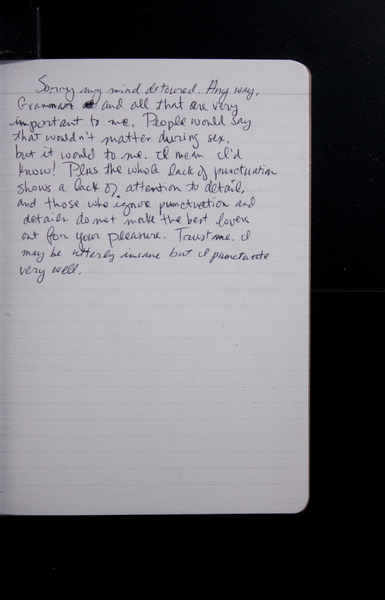 Sorry my mind detoured. Any way,
Grammar and all that are very
important to me. People would say
that wouldn't matter during sex,
but it would to me. I mean I'd
know! Plus the whole lack of punctuation
shows a lack of attention to detail,
and those who ignore punctuation and
details do not make the best lovers
out for your pleasure. Trust me. I
may be utterly insane but I punctuate
very well.